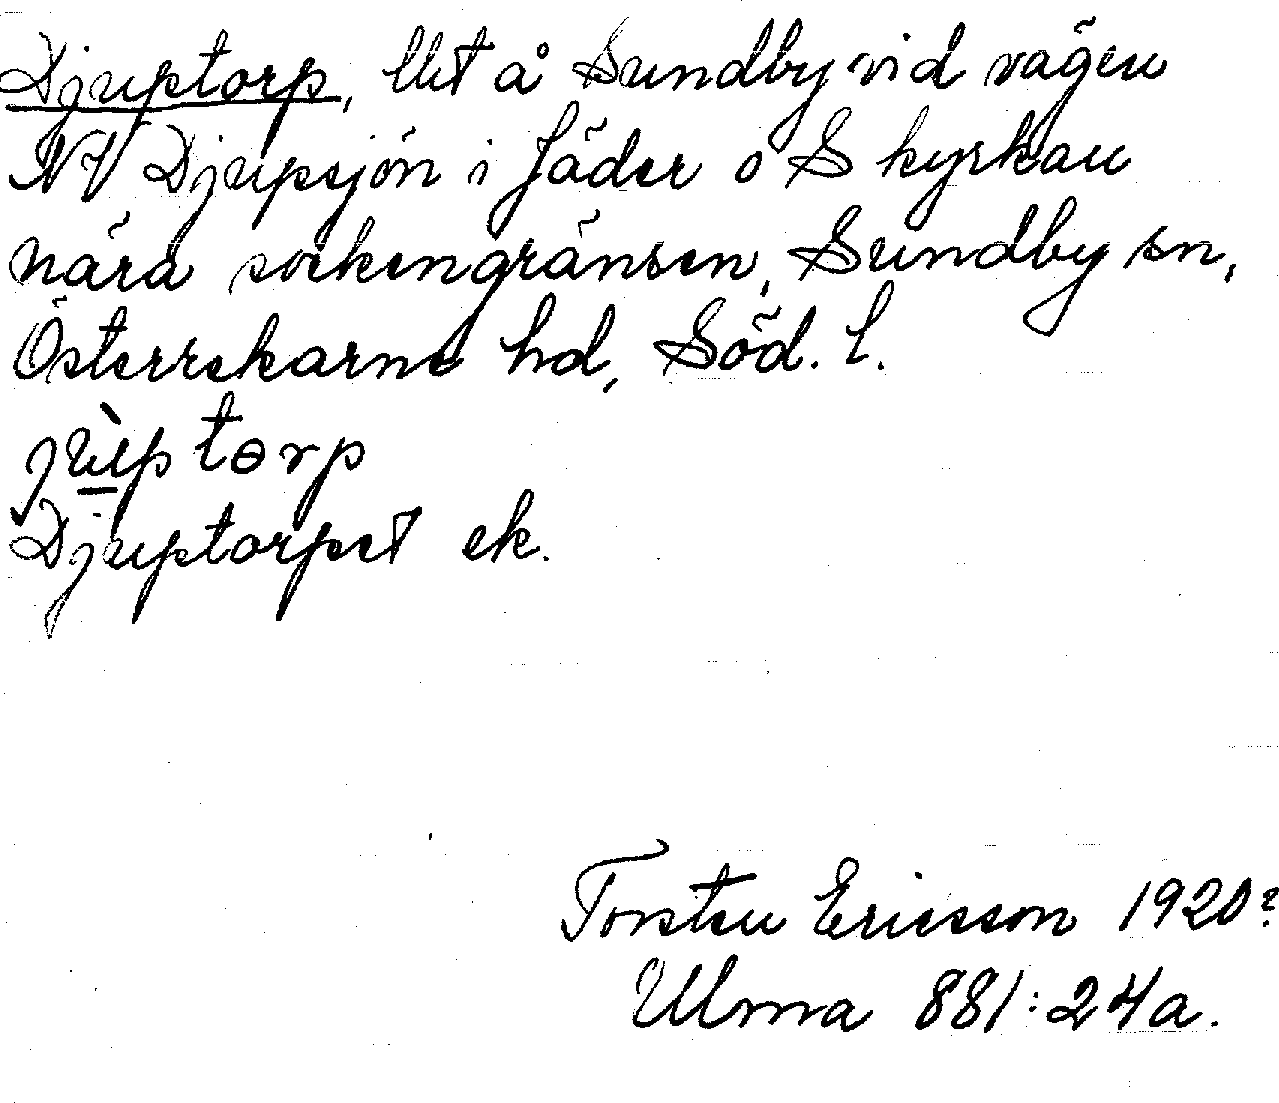 Djuptorp, lht å Sundby vid vägen
NV Djupsjön i Jäder o S kyrkan
nära sockengränsen, Sundby sn,
Österrekarne hd, Söd. l.
jùp tɵrp
Djuptorpet ek.
Torsten Ericsson 1920?
Ulma 881:24a.